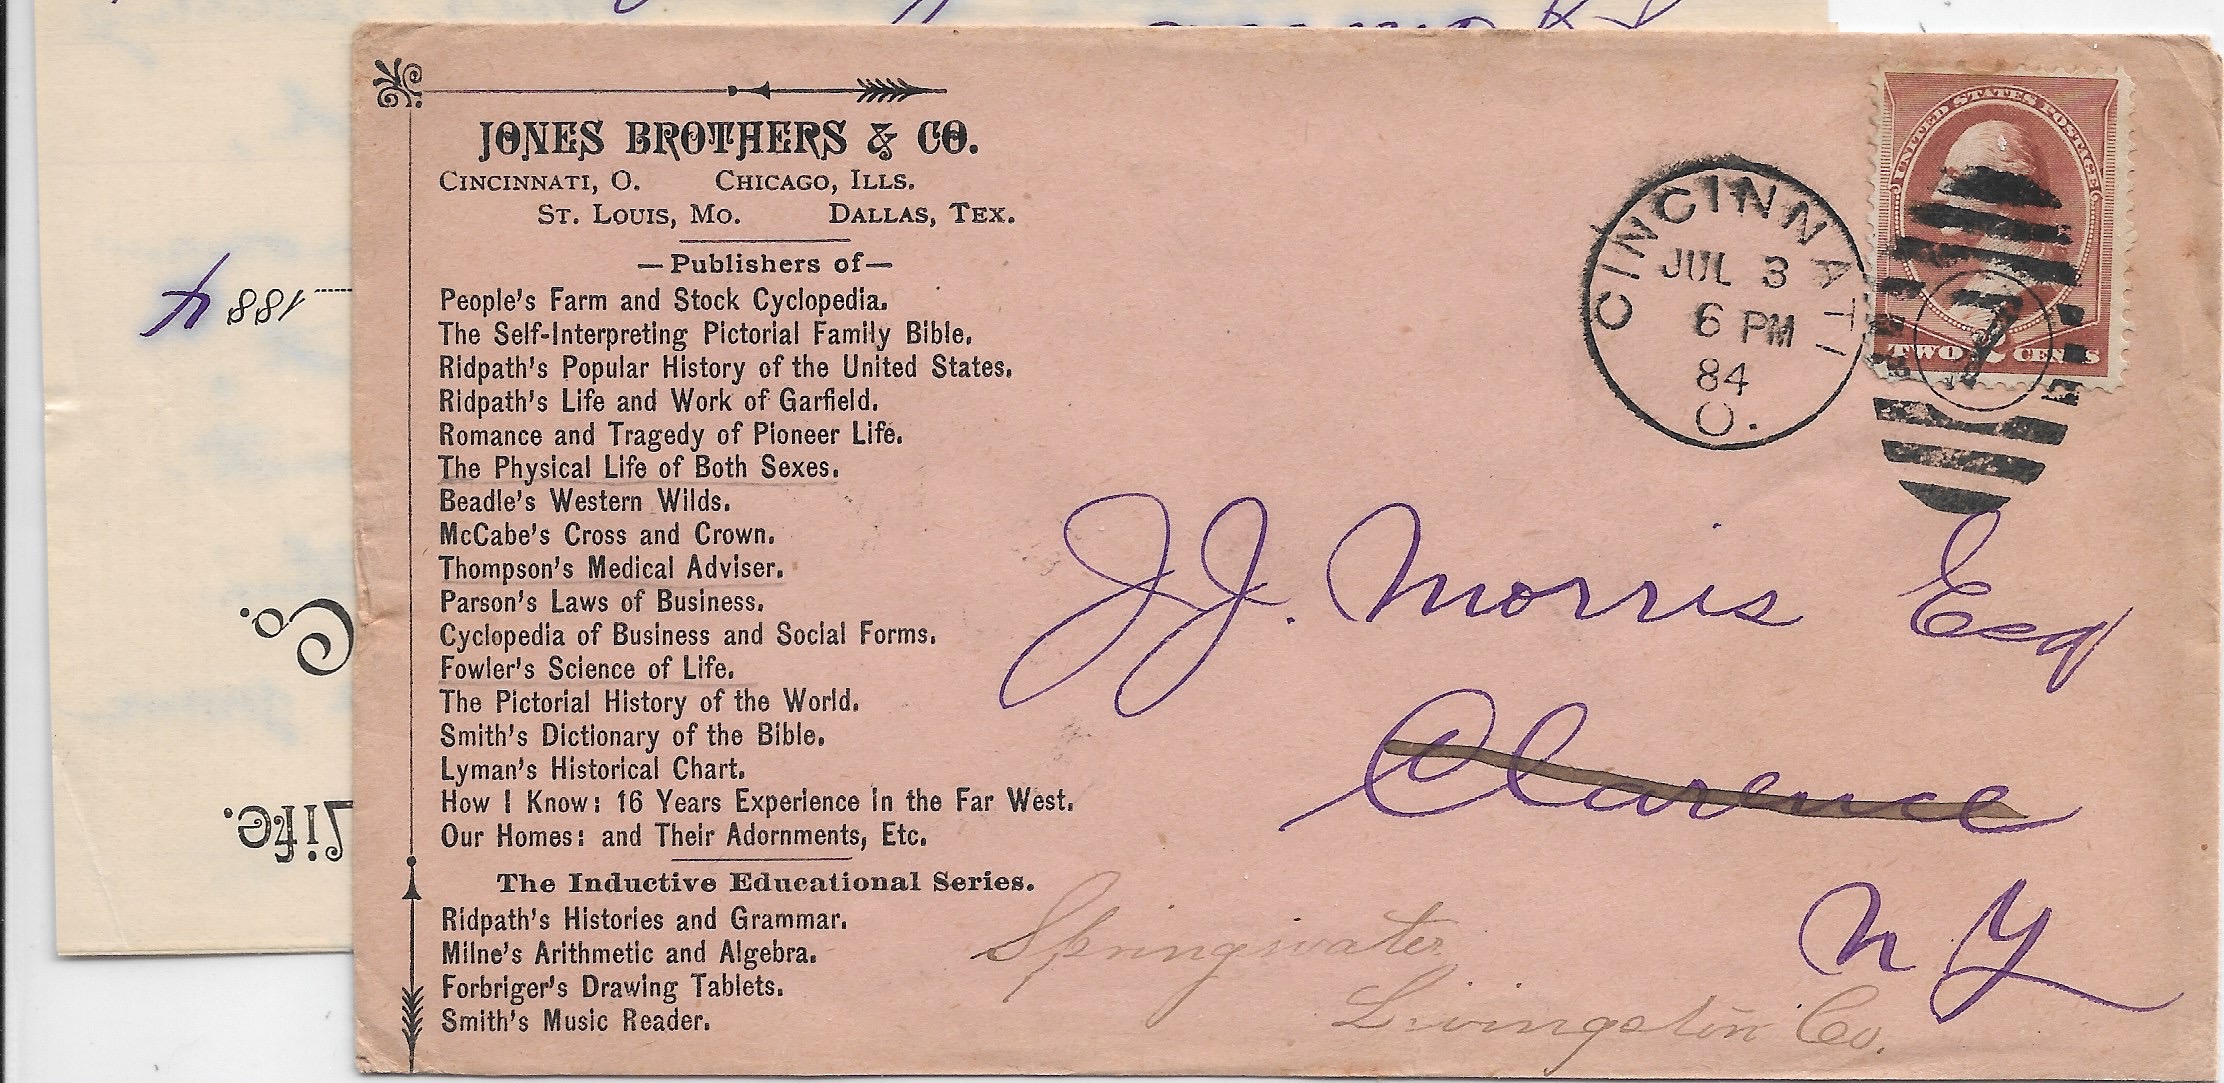 JONES BROTHERS & CO.
CINCINNATI, O. CHICAGO, ILLS.
ST. LOUIS, MO. DALLAS, TEX.
—Publishers of—
People's Farm and Stock Cyclopedia.
The Self-Interpreting Pictorial Family Bible.
Ridpath's Popular History of the United States.
Ridpath's Life and Work of Garfield.
Romance and Tragedy of Pioneer Life.
The Physical Life of Both Sexes.
Beadle's Western Wilds.
McCabe's Cross and Crown.
Thompson's Medical Adviser.
Parson's Laws of Business.
Cyclopedia of Business and Social Forms.
Fowler's Science of Life.
The Pictorial History of the World.
Smith's Dictionary of the Bible.
Lyman's Historical Chart.
How I Know: 16 Years Experience in the Far West.
Our Homes: and Their Adornments, Etc.
The Inductive Educational Series.
Ridpath's Histories and Grammar.
Milne's Arithmetic and Algebra.
Forbriger's Drawing Tablets.
Smith's Music Reader.
CINCINNATI
JUL 3
6 PM
84
O.
UNITED STATES POSTAGE
TWO 2 CENTS
7
J.J. Morris Esq
Clarence
N Y
Springwater
Livingston Co.
1884
Co.
Life.